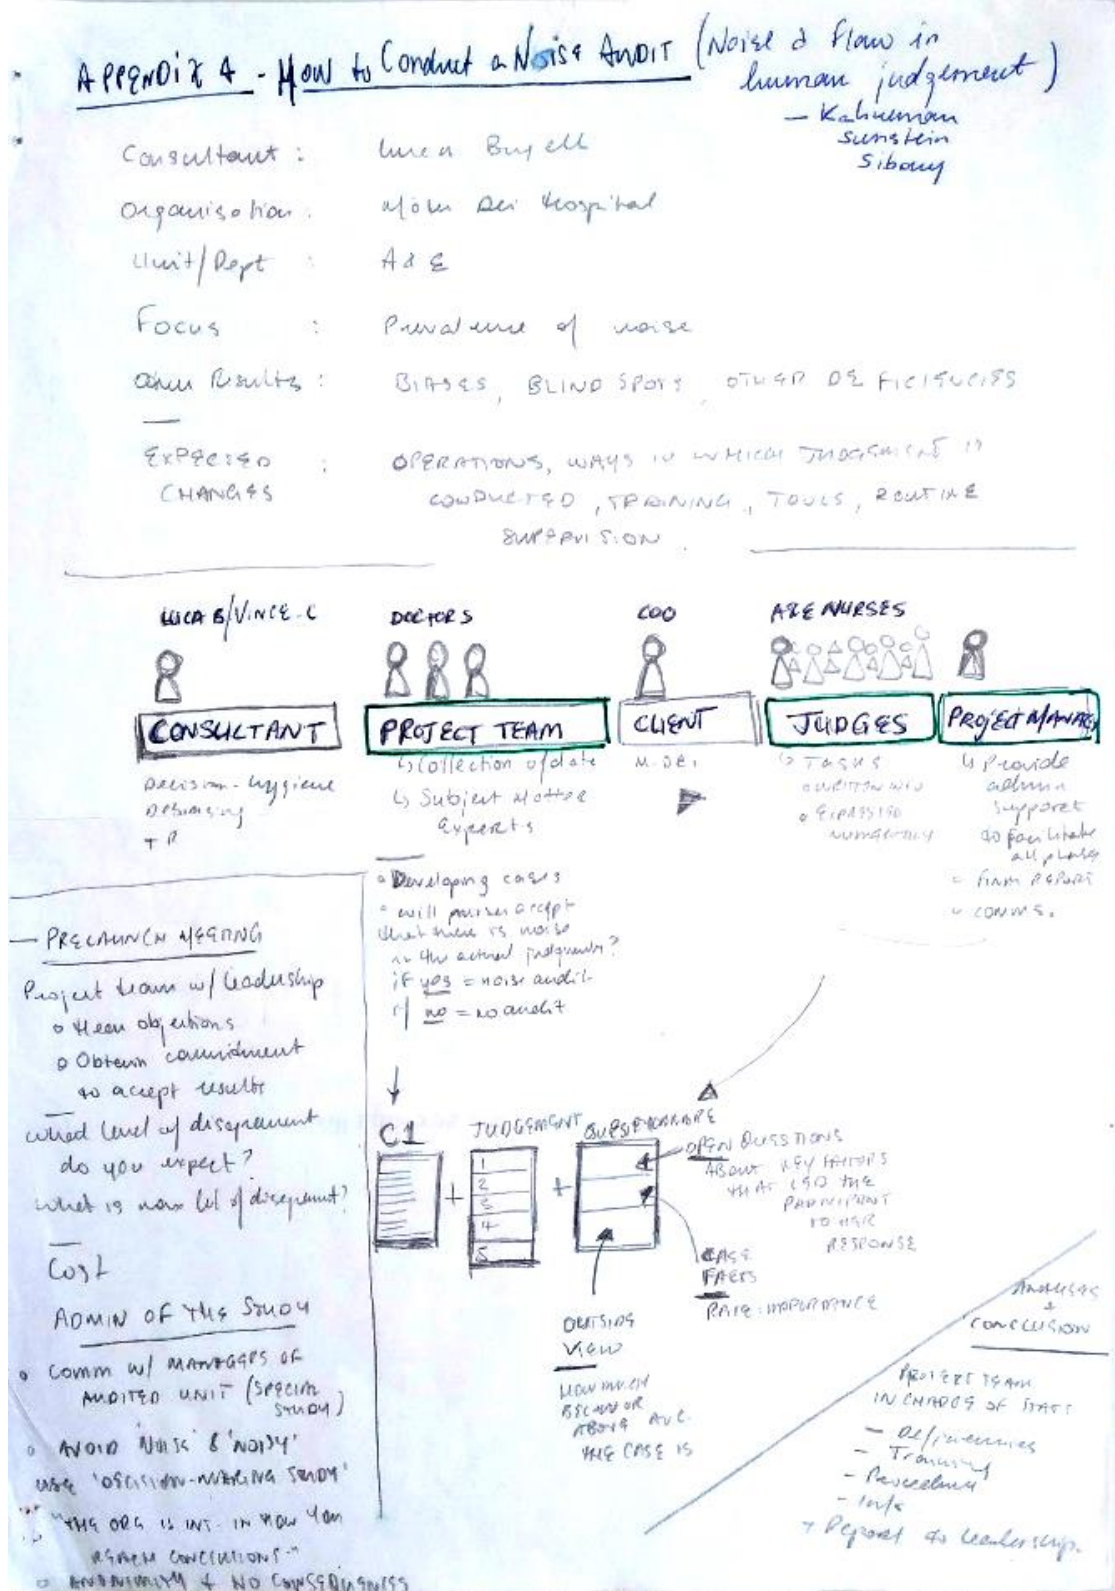 APPENDIX 4 - How to Conduct a Noise AUDIT (Noise a flaw in
human judgement)
- Kahneman
Sunstein
Sibony
Consultant :
Organisation : Hospital
Unit/Dept : A & E
Focus : Prevalence of noise
Other Results : BIASES, BLIND SPOTS, OTHER DEFICIENCIES
EXPECTED : OPERATIONS, WAYS IN WHICH JUDGEMENT IS
CHANGES CONDUCTED, TRAINING, TOOLS, ROUTINE
SUPERVISION
LUCA B/VINCE-C
CONSULTANT
Decision-hygiene
Debiasing
DOCTORS
PROJECT TEAM
↳ Collection of data
↳ Subject Matter
Experts
Developing cases
will nurses accept
that there is noise
in the actual judgments?
if yes = noise audit
if no = no audit
COO
CLIENT
A&E NURSES
JUDGES
↳ TASKS
WRITTEN INFO
EXPRESSED
NUMERICALLY
PROJECT MANAGER
↳ Provide
admin
support
to facilitate
all phases
FINAL REPORT
COMMS.
- PRELAUNCH MEETING
Project team w/ leadership
o Hear objections
o Obtain commitment
to accept results
What level of disagreement
do you expect?
what is max lvl of disagreement?
Cost
ADMIN OF THE STUDY
o COMM W/ MANAGERS OF
AUDITED UNIT (SPECIAL
STUDY)
o AVOID 'NOISE' & 'NOISY'
USE 'DECISION-MAKING STUDY'
"THE ORG IS INT. IN HOW YOU
REACH CONCLUSIONS."
o ANONIMITY & NO CONSEQUENCES
C1
JUDGEMENT
1
2
3
4
5
QUESTIONNAIRE
OPEN QUESTIONS
ABOUT KEY FACTORS
THAT LED THE
PARTICIPANT
TO HER
RESPONSE
CASE
FACTS
RATE IMPORTANCE
OUTSIDE
VIEW
HOW MUCH
BELOW OR
ABOVE AVE.
THE CASE IS
ANALYSES
+
CONCLUSION
PROJECT TEAM
IN CHARGE OF STATS
- Deficiencies
- Training
- Procedures
- Info
→ Report to leadership.